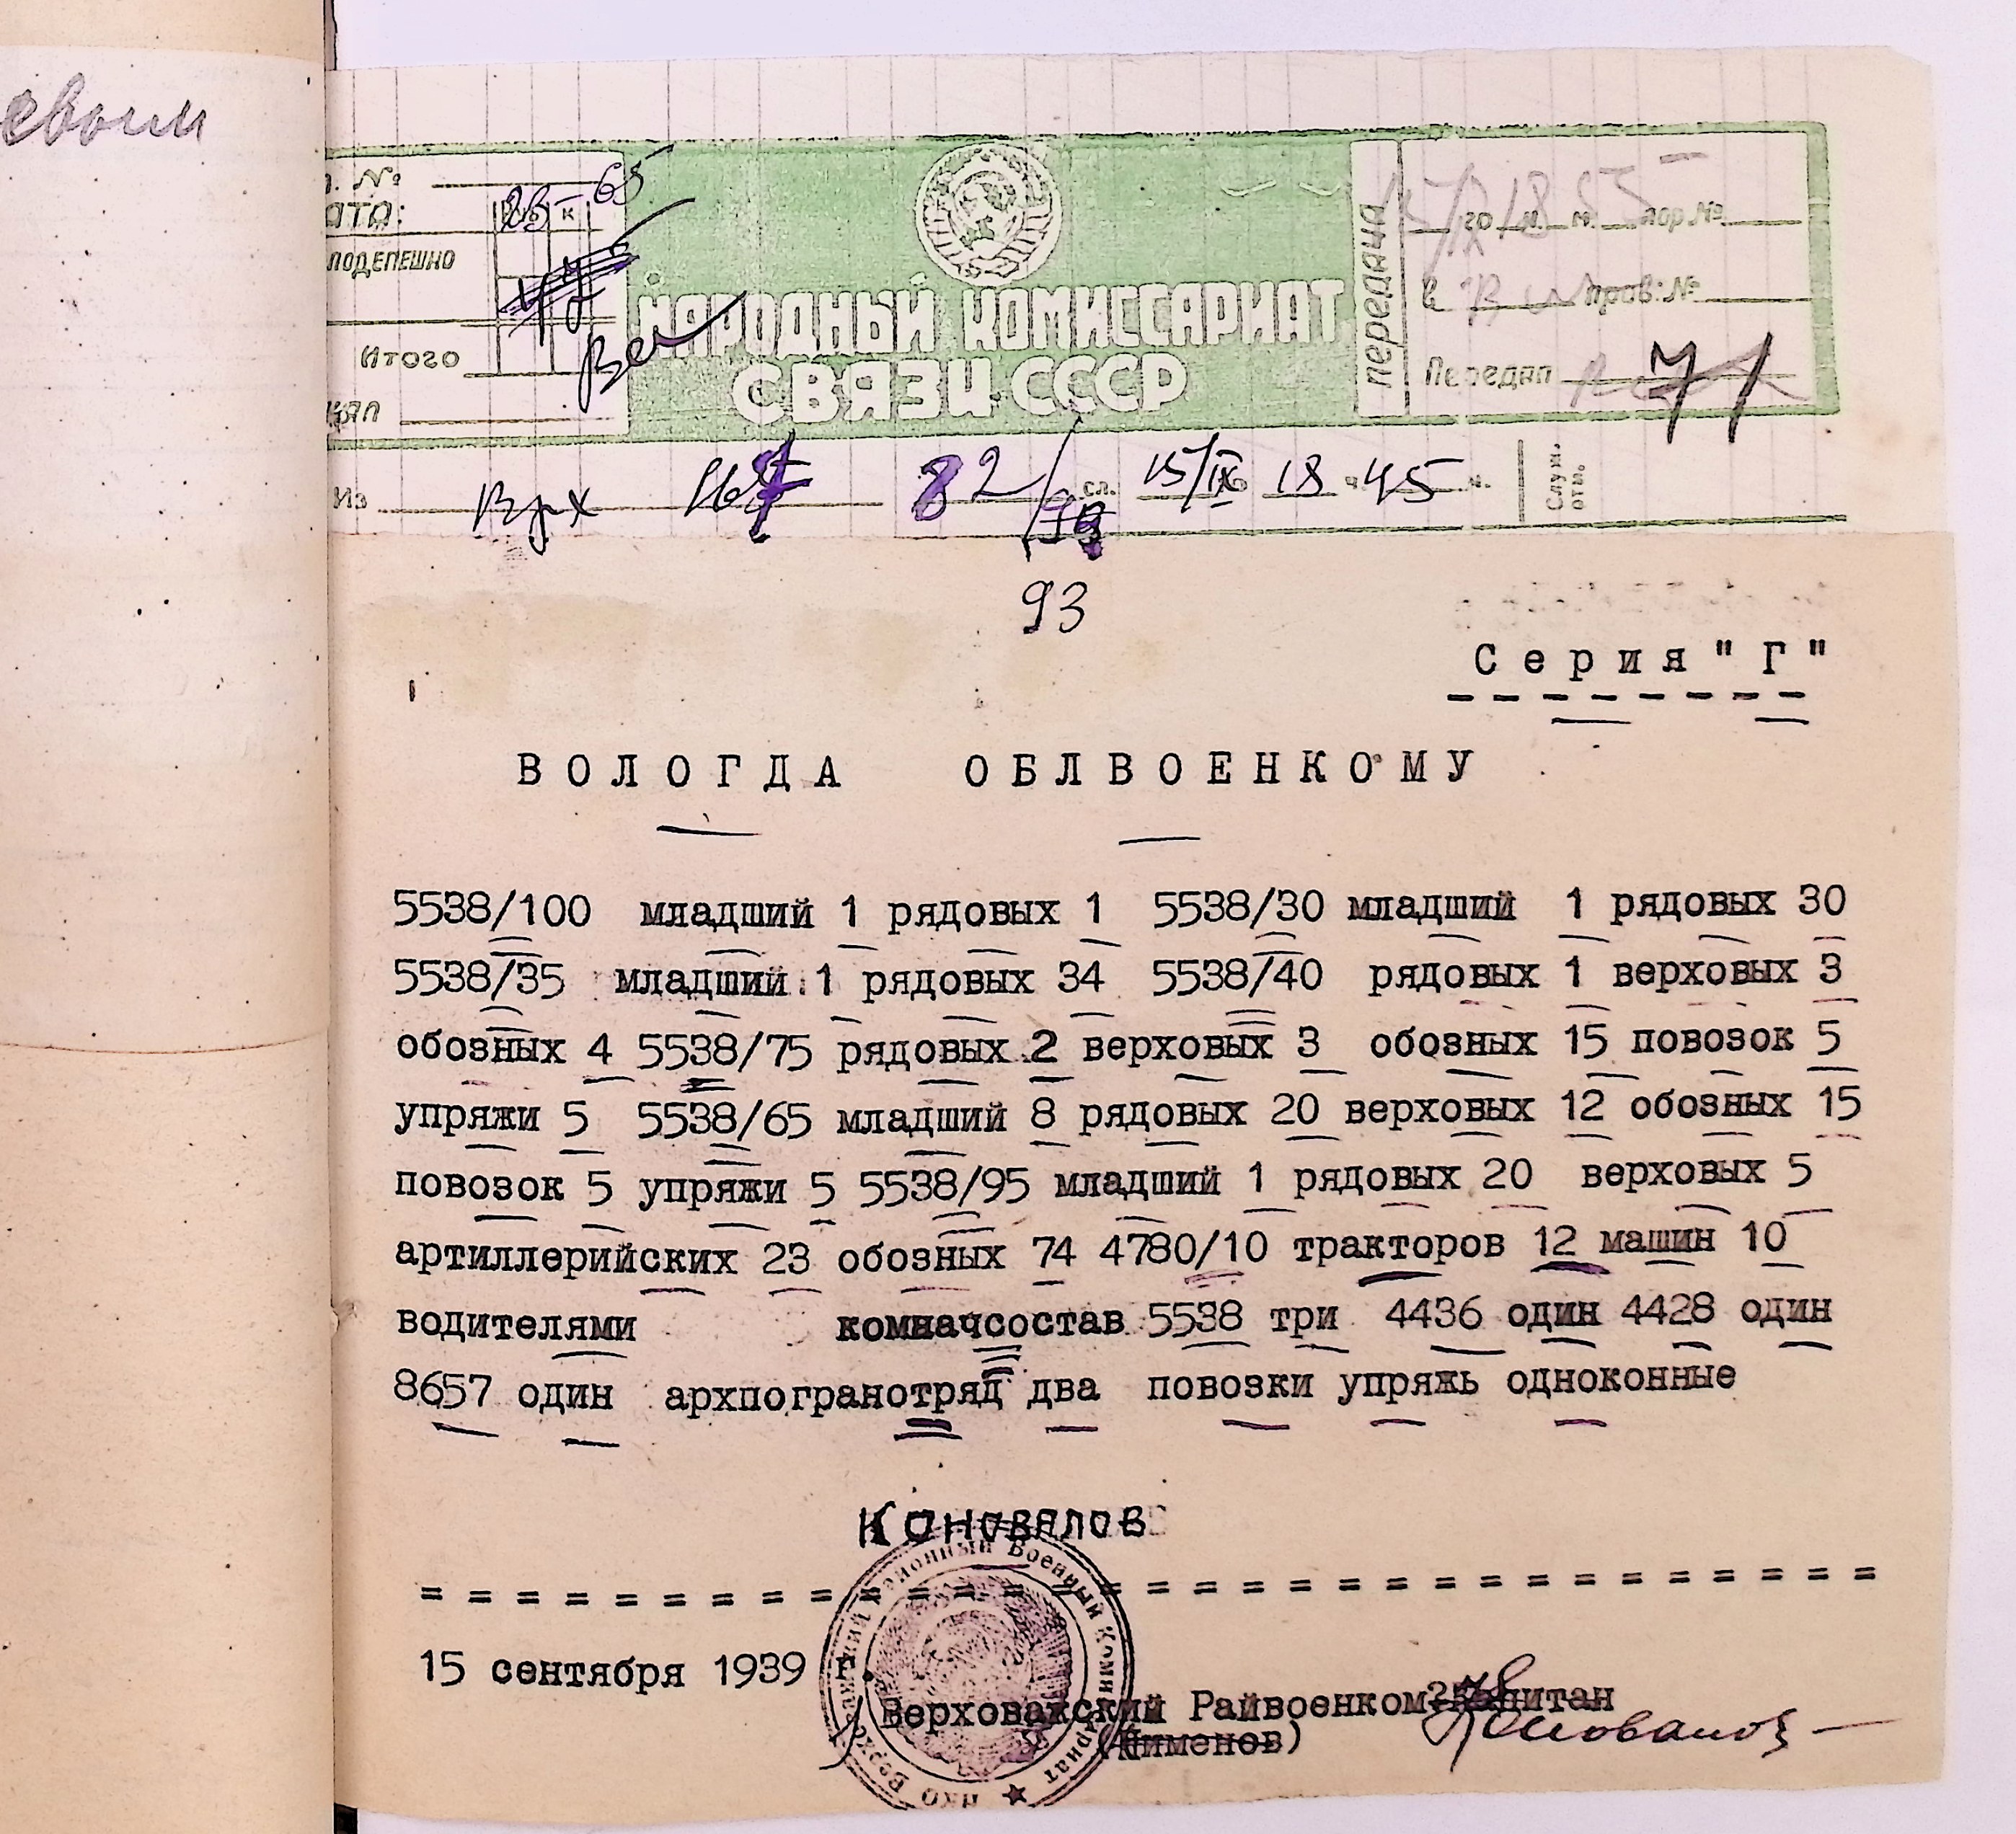 евым
№
23 - 65
АТА:
к
ЛОДЕПЕШНО
Итого
НАРОДНЫЙ КОМИССАРИАТ
СВЯЗИ СССР
передача
15/IX 18 55
го ч. м. пор.№
в пров:№
Передал
71
Из Врх 82/ сл. 15/IX 18 ч 45 м.
Служ.
отм.
93
Серия "Г"
ВОЛОГДА ОБЛВОЕНКОМУ
5538/100 младший 1 рядовых 1 5538/30 младший 1 рядовых 30
5538/35 младший 1 рядовых 34 5538/40 рядовых 1 верховых 3
обозных 4 5538/75 рядовых 2 верховых 3 обозных 15 повозок 5
упряжи 5 5538/65 младший 8 рядовых 20 верховых 12 обозных 15
повозок 5 упряжи 5 5538/95 младший 1 рядовых 20 верховых 5
артиллерийских 23 обозных 74 4780/10 тракторов 12 машин 10
водителями комначсостав 5538 три 4436 один 4428 один
8657 один архпогранотряд два повозки упряжь одноконные
Коновалов
= = = = = = = = = = = = = = = = = = = = = = = = = = = = = =
15 сентября 1939 г.
Верховажский Райвоенком капитан
(Пименов) Коновалов
НКО Верховажский Районный Военный Комиссариат